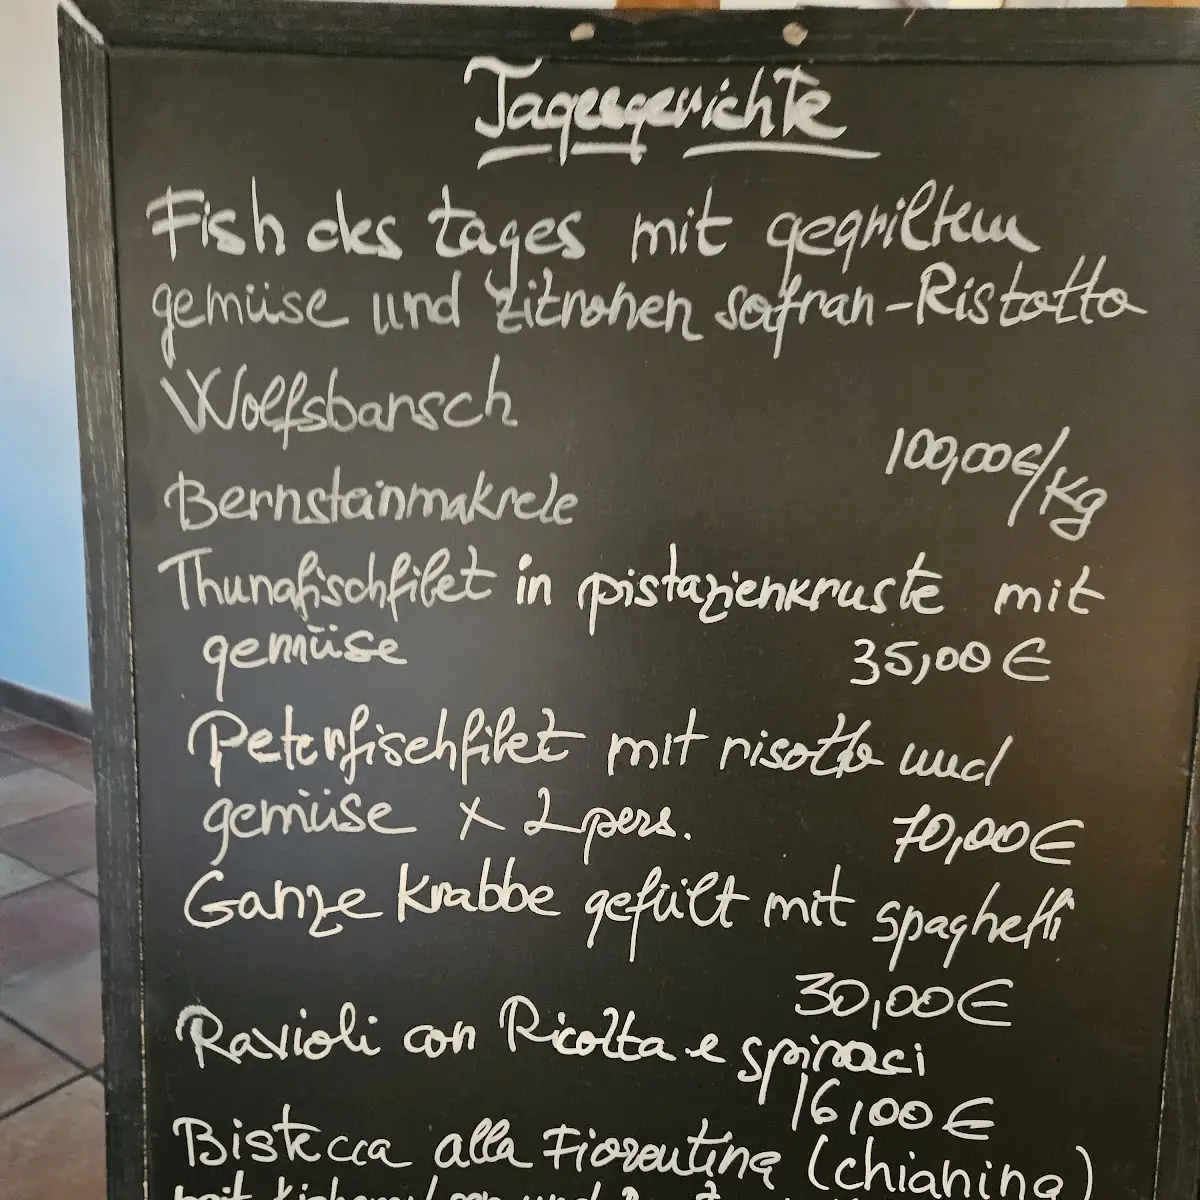 Tagesgerichte
Fish des tages mit gegriltem
gemüse und zitronen safran-Ristotto
Wolfsbarsch
100,00€/Kg
Bernsteinmakrele
Thunafischfilet in pistazienkruste mit
gemüse 35,00€
Peterfischfilet mit risotto und
gemüse x 2 pers. 70,00€
Ganze Krabbe gefült mit spaghetti
30,00€
Ravioli con Ricotta e spinaci
16,00€
Bistecca alla Fiorentina (chianina)
mit und